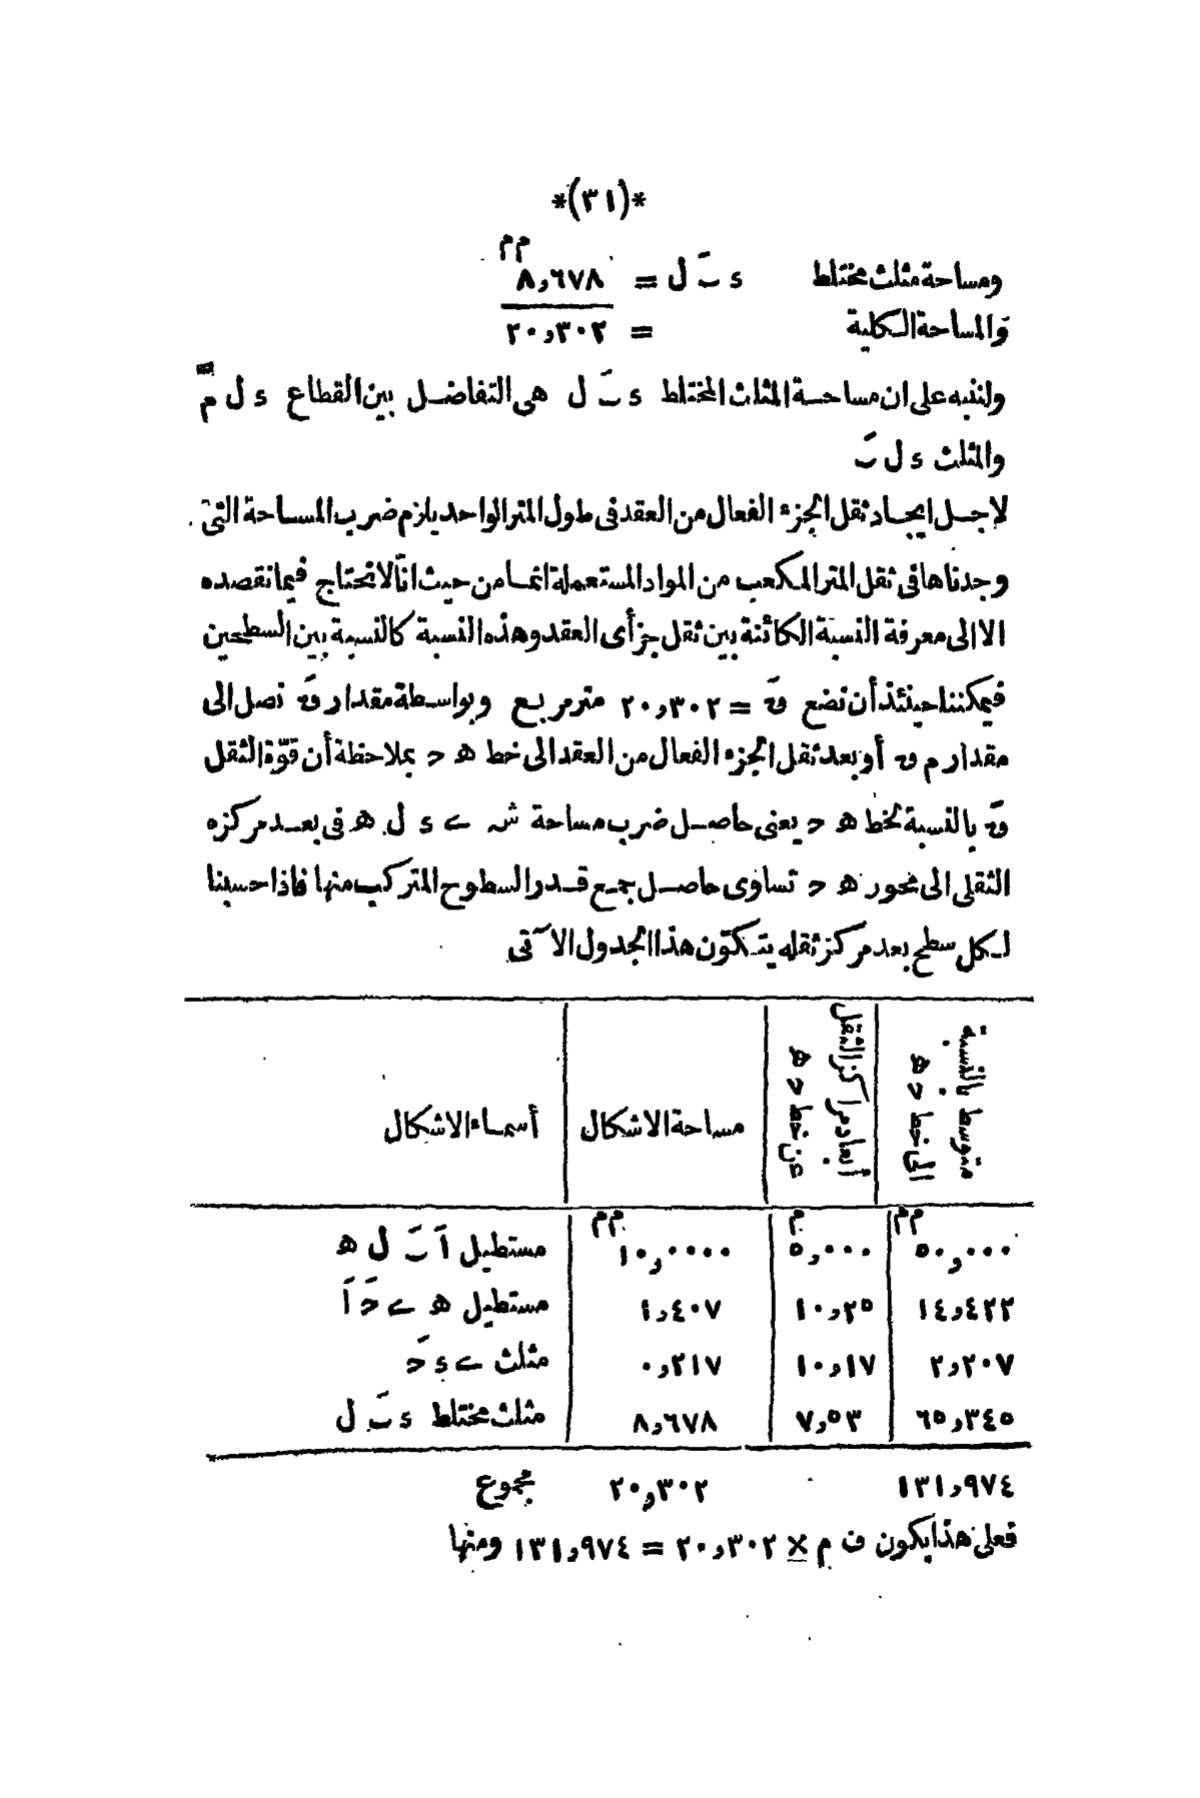 *(٣١)*
ومساحة مثلث مختلط ء بَ ل = ٨,٦٧٨ م م
والمساحة الكلية = ٢٠,٣٠٢
ولننبه على ان مساحة المثلث المختلط ء بَ ل هى التفاضل بين القطاع ء ل م
والمثلث ء ل بَ
لاجل ايجاد ثقل الجزء الفعال من العقد فى طول المتر الواحد يلزم ضرب المساحة التى
وجدناها فى ثقل المتر المكعب من المواد المستعملة انما من حيث انّا لانحتاج فيما نقصده
الا الى معرفة النسبة الكائنة بين ثقل جزأى العقد وهذه النسبة كالنسبة بين السطحين
فيمكننا حينئذ أن نضع قَ = ٢٠,٣٠٢ متر مربع وبواسطة مقدار قَ نصل الى
مقدار م ق أو بعد ثقل الجزء الفعال من العقد الى خط ه ح بملاحظة أن قوّة الثقل
قَ بالنسبة لخط ه ح يعنى حاصل ضرب مساحة ش ے ء ل ه فى بعد مركزه
الثقلى الى محور ه ح تساوى حاصل جمع قدر السطوح المتركب منها فاذا حسبنا
لكل سطح بعد مركز ثقله يتكوّن هذا الجدول الآتى
متوسط بالنسبة الى خط ح ه | أبعاد مراكز الثقل عن خط ح ه | مساحة الاشكال | أسماء الاشكال
م م ٥٠,٠٠٠ | م ٥,٠٠٠ | م م ١٠,٠٠٠٠ | مستطيل اَ بَ ل ه
١٤,٤٢٢ | ١٠,٢٥ | ١,٤٠٧ | مستطيل ه ے حَ اَ
٢,٢٠٧ | ١٠,١٧ | ٠,٢١٧ | مثلث ے ء حَ
٦٥,٣٤٥ | ٧,٥٣ | ٨,٦٧٨ | مثلث مختلط ء بَ ل
١٣١,٩٧٤ | ٢٠,٣٠٢ | مجموع
فعلى هذا يكون ف م × ٢٠,٣٠٢ = ١٣١,٩٧٤ ومنها